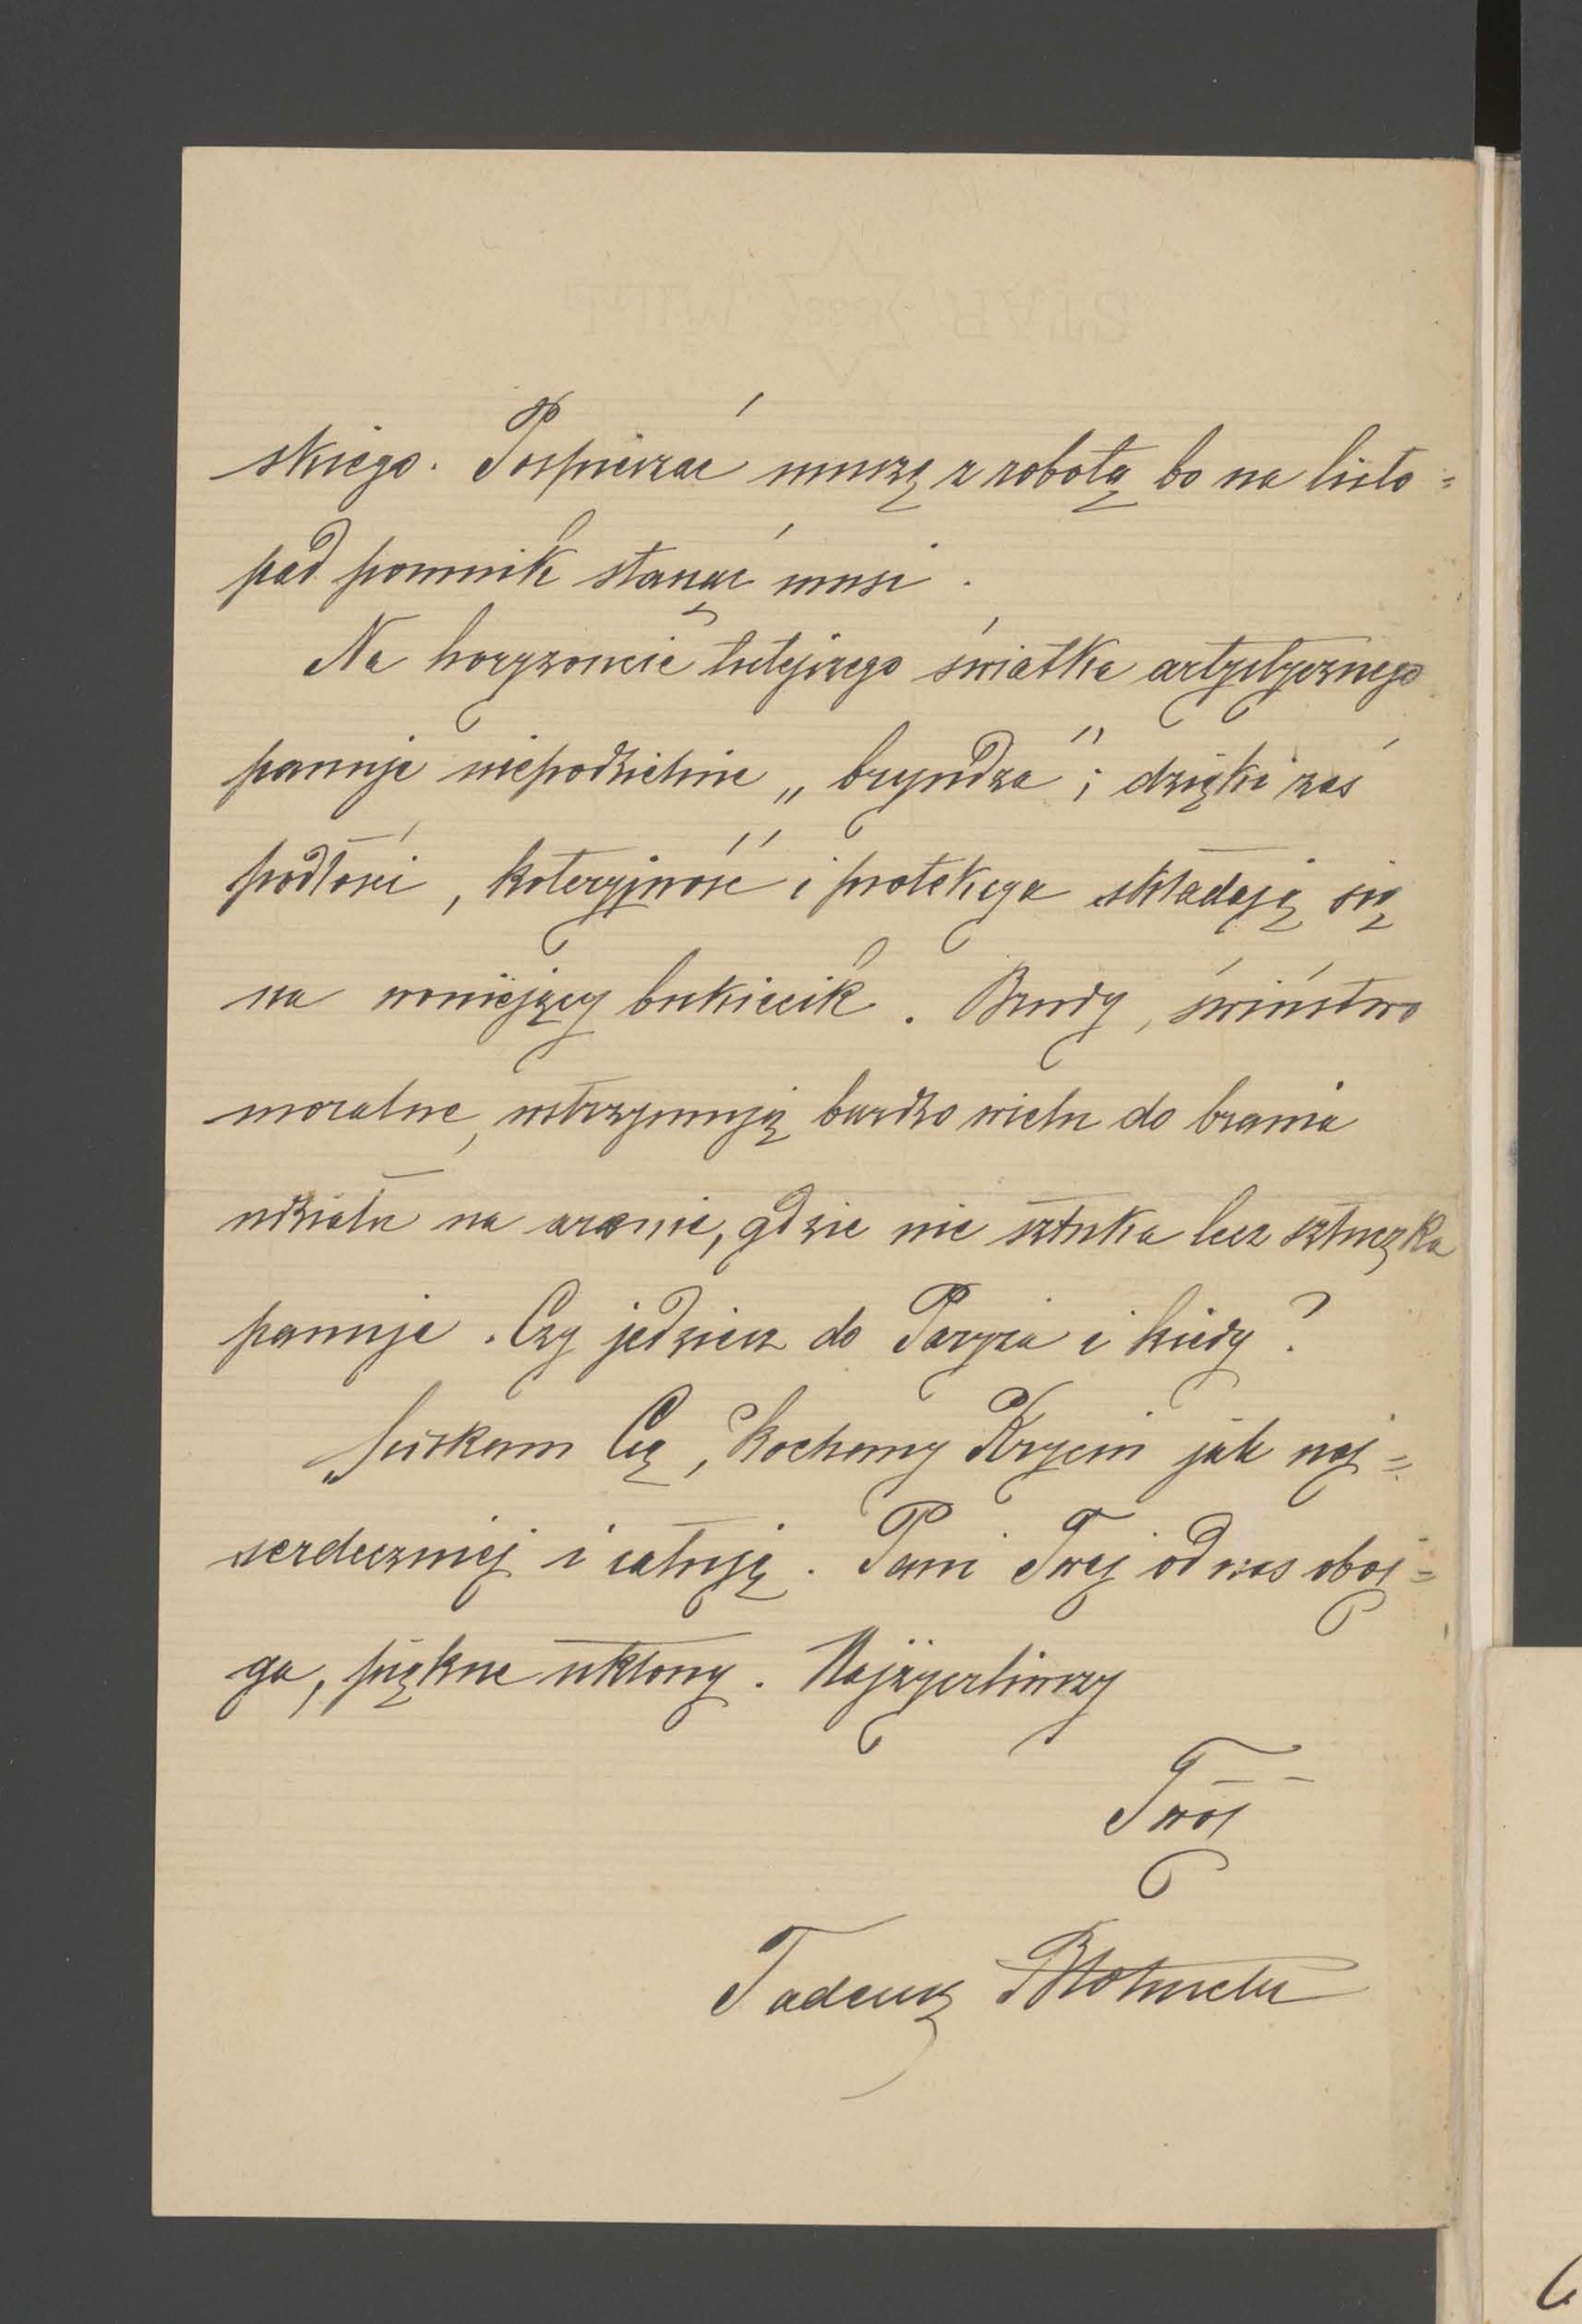 skiego. Pospieszać muszę z robotą bo na listo=
pad pomnik stanąć musi.
Na horyzoncie tutejszego światka artystycznego
panuje niepodzielnie „bryndza"; dzięki zaś
podłości, koteryjność i protekcya składają się
na woniejący bukiecik. Brudy, świństwo
moralne, wstrzymują bardzo wielu do brania
udziału na arenie, gdzie nie sztuka lecz sztuczka
panuje. Czy jedziesz do Paryża i kiedy?
Ściskam Cię, kochany Krzciu jak naj=
serdeczniej i całuję. Pani Twej od nas oboj=
ga, piękne ukłony. Najżyczliwszy
Twój
Tadeusz Błotnicki